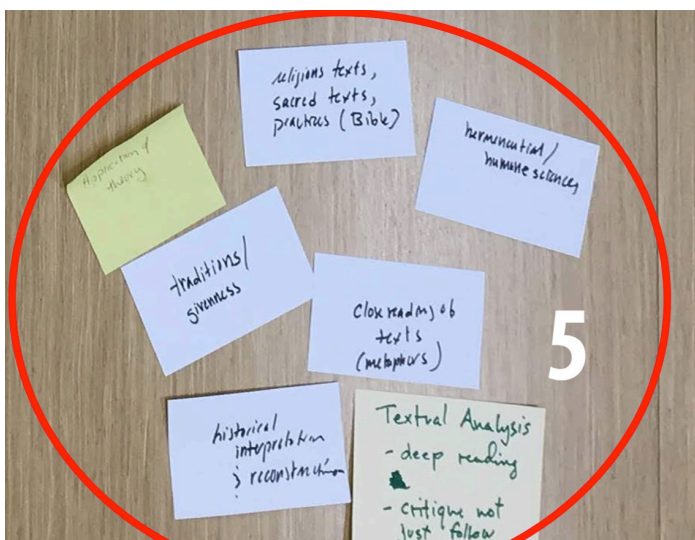 religions texts,
sacred texts,
practices (Bible)
hermeneutical/
humane sciences
Application of
theory
traditions/
givenness
close reading of
texts
(metaphors)
5
historical
interpretation
& reconstruction
Textual Analysis
- deep reading
- critique not
just follow